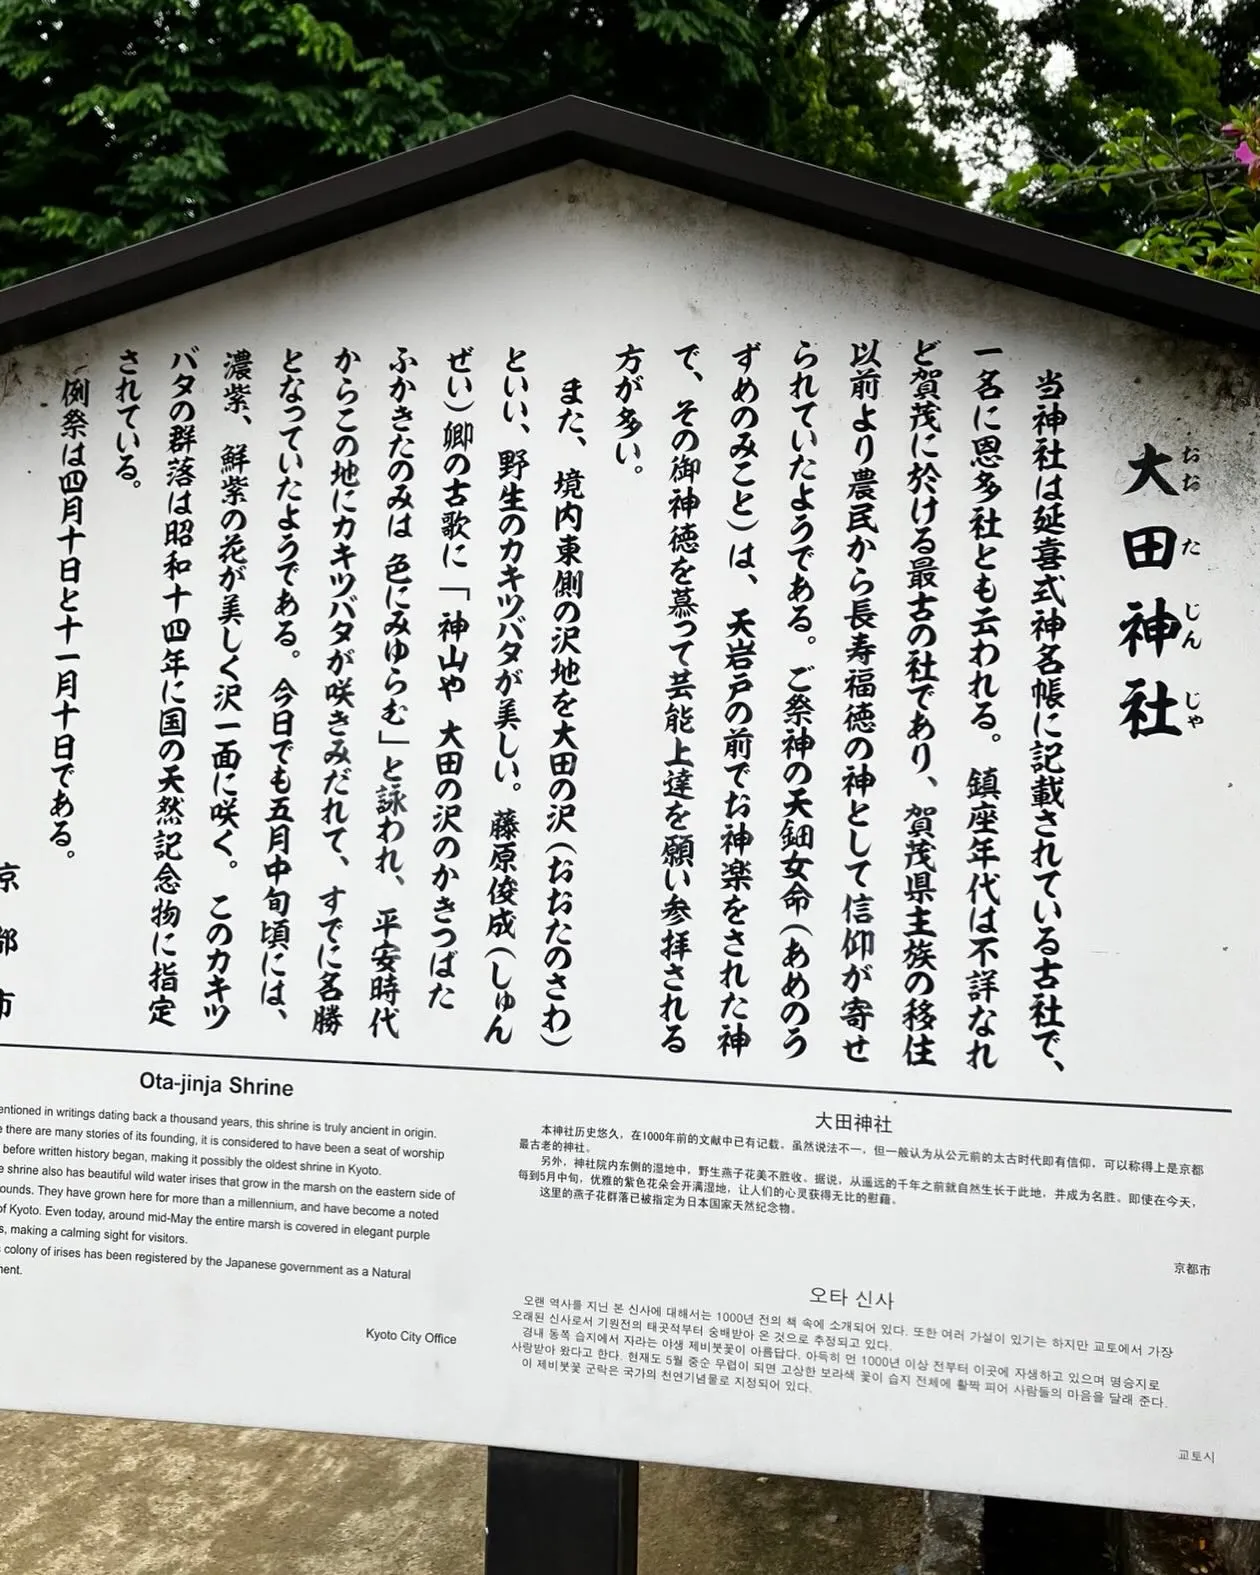 大田神社
おおたじんじゃ
当神社は延喜式神名帳に記載されている古社で、
一名に恩多社とも云われる。鎮座年代は不詳なれ
ど賀茂に於ける最古の社であり、賀茂県主族の移住
以前より農民から長寿福徳の神として信仰が寄せ
られていたようである。ご祭神の天鈿女命(あめのう
ずめのみこと)は、天岩戸の前でお神楽をされた神
で、その御神徳を慕って芸能上達を願い参拝される
方が多い。
また、境内東側の沢地を大田の沢(おおたのさわ)
といい、野生のカキツバタが美しい。藤原俊成(しゅん
ぜい)卿の古歌に「神山や 大田の沢のかきつばた
ふかきたのみは 色にみゆらむ」と詠われ、平安時代
からこの地にカキツバタが咲きみだれて、すでに名勝
となっていたようである。今日でも五月中旬頃には、
濃紫、鮮紫の花が美しく沢一面に咲く。このカキツ
バタの群落は昭和十四年に国の天然記念物に指定
されている。
例祭は四月十日と十一月十日である。
京都市
Ota-jinja Shrine
entioned in writings dating back a thousand years, this shrine is truly ancient in origin.
e there are many stories of its founding, it is considered to have been a seat of worship
before written history began, making it possibly the oldest shrine in Kyoto.
e shrine also has beautiful wild water irises that grow in the marsh on the eastern side of
ounds. They have grown here for more than a millennium, and have become a noted
of Kyoto. Even today, around mid-May the entire marsh is covered in elegant purple
s, making a calming sight for visitors.
colony of irises has been registered by the Japanese government as a Natural
ment.
Kyoto City Office
大田神社
本神社历史悠久，在1000年前的文献中已有记载。虽然说法不一，但一般认为从公元前的太古时代即有信仰，可以称得上是京都
最古老的神社。
另外，神社院内东侧的湿地中，野生燕子花美不胜收。据说，从遥远的千年之前就自然生长于此地，并成为名胜。即使在今天，
每到5月中旬，优雅的紫色花朵会开满湿地，让人们的心灵获得无比的慰藉。
这里的燕子花群落已被指定为日本国家天然纪念物。
京都市
오타 신사
오랜 역사를 지닌 본 신사에 대해서는 1000년 전의 책 속에 소개되어 있다. 또한 여러 가설이 있기는 하지만 교토에서 가장
오래된 신사로서 기원전의 태곳적부터 숭배받아 온 것으로 추정되고 있다.
경내 동쪽 습지에서 자라는 야생 제비붓꽃이 아름답다. 아득히 먼 1000년 이상 전부터 이곳에 자생하고 있으며 명승지로
사랑받아 왔다고 한다. 현재도 5월 중순 무렵이 되면 고상한 보라색 꽃이 습지 전체에 활짝 피어 사람들의 마음을 달래 준다.
이 제비붓꽃 군락은 국가의 천연기념물로 지정되어 있다.
교토시